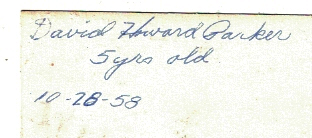 David Howard Parker
5yrs old
10-28-58